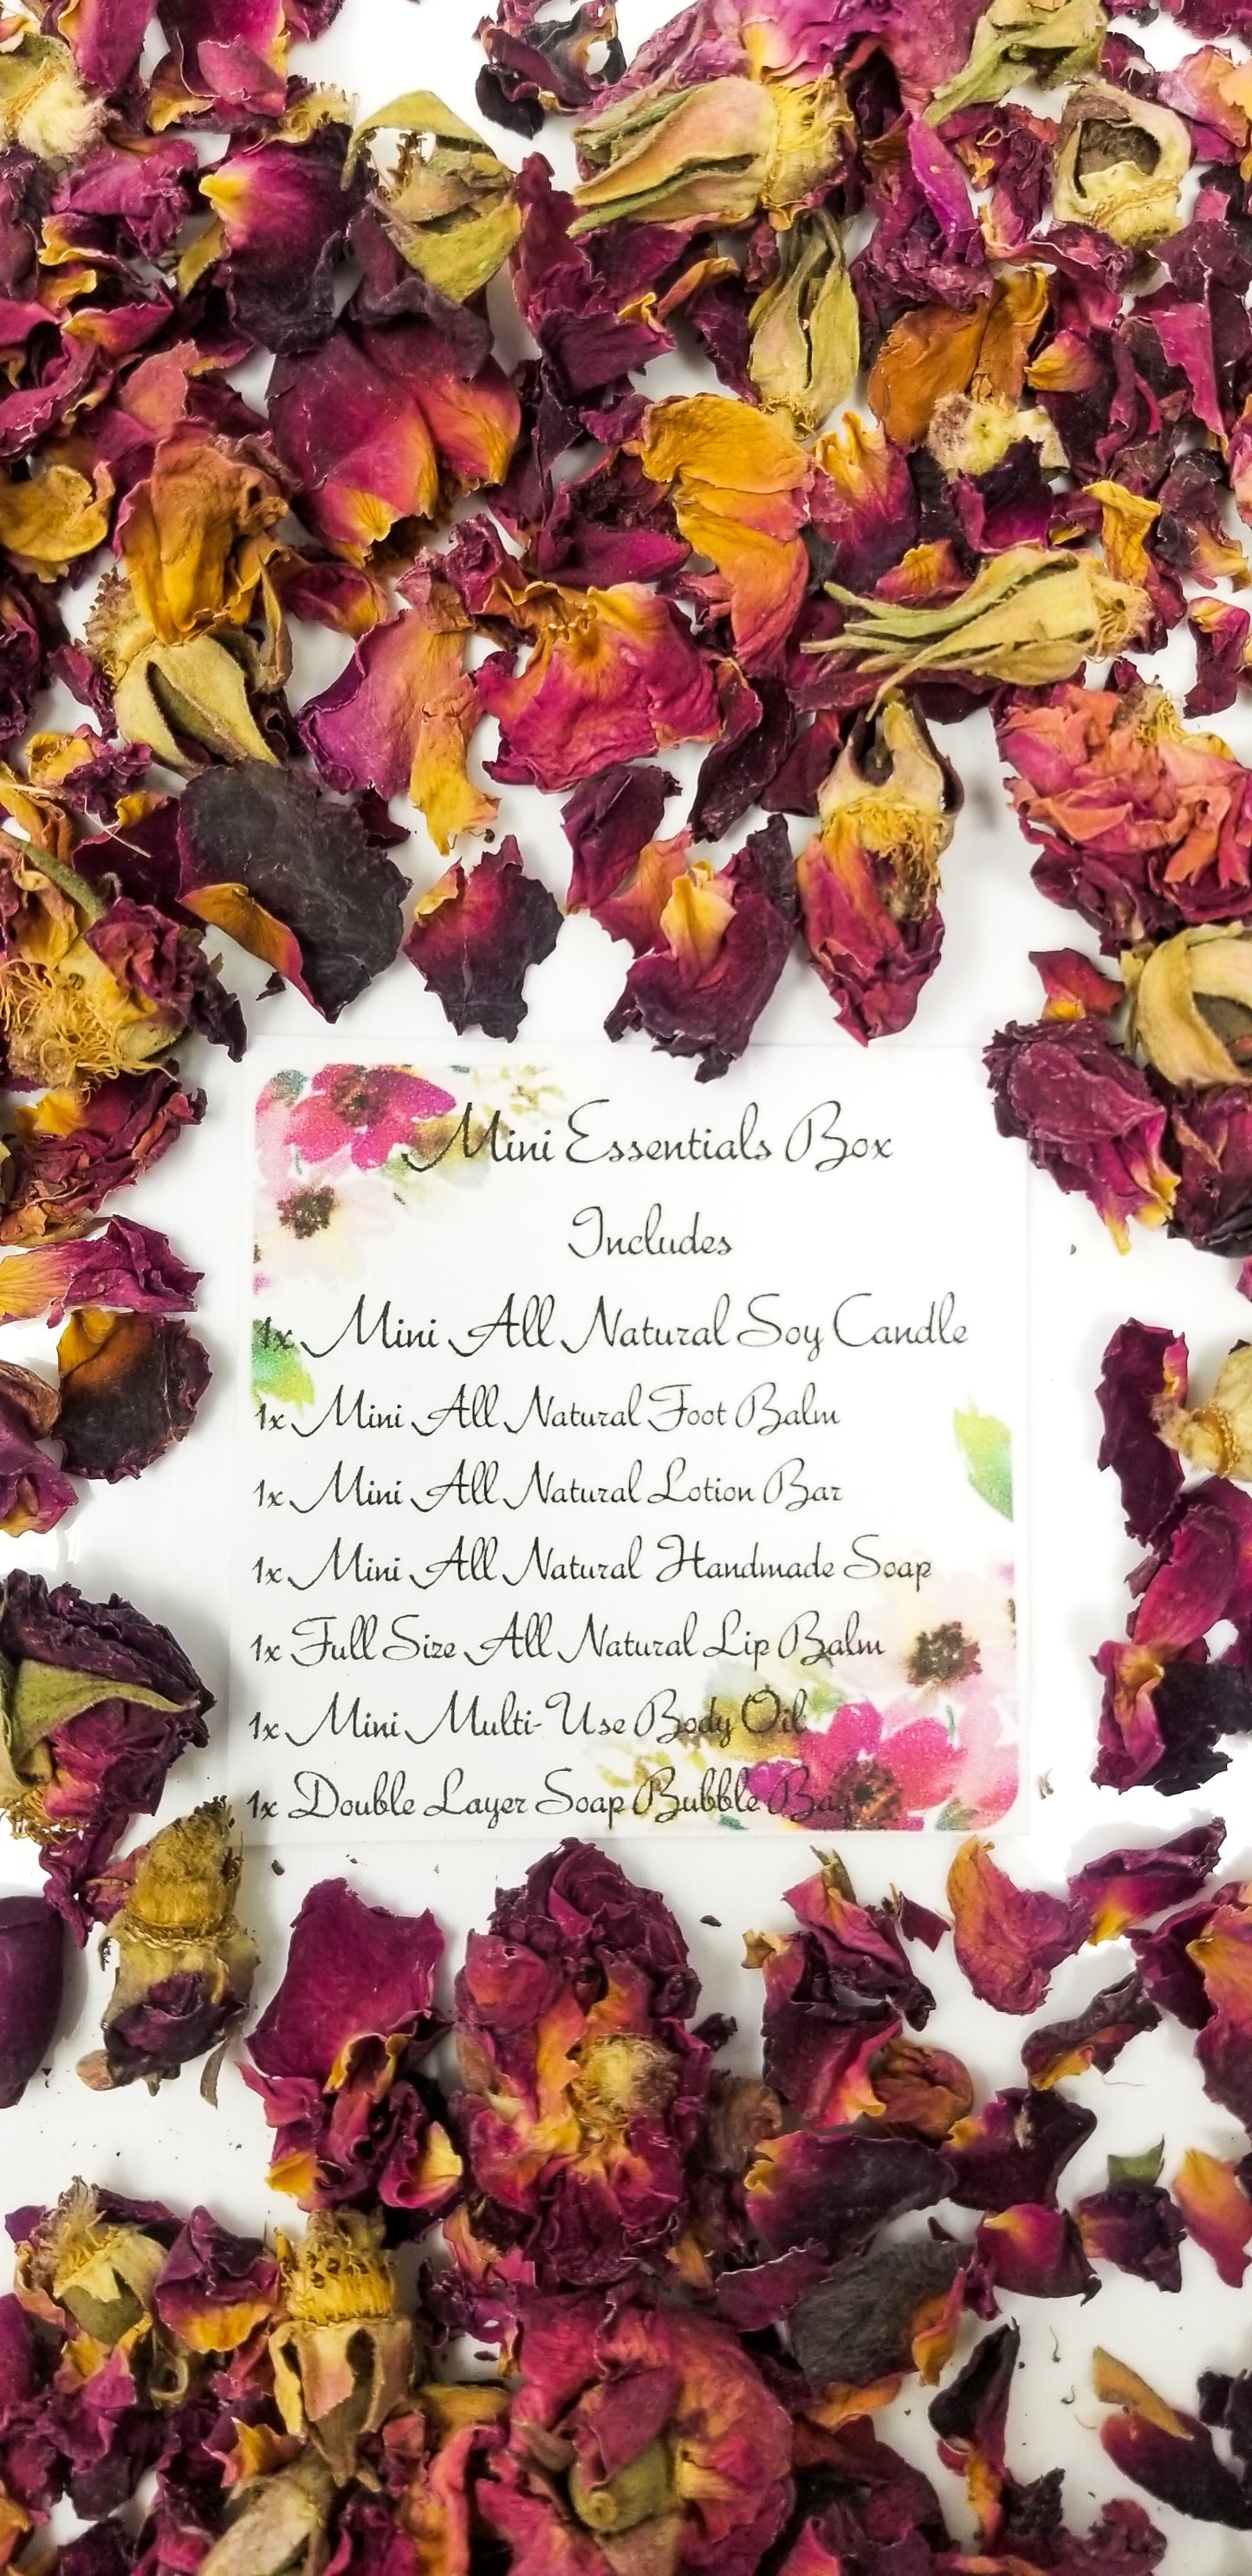 Mini Essentials Box
Includes
1x Mini All Natural Soy Candle
1x Mini All Natural Foot Balm
1x Mini All Natural Lotion Bar
1x Mini All Natural Handmade Soap
1x Full Size All Natural Lip Balm
1x Mini Multi-Use Body Oil
1x Double Layer Soap Bubble Bag